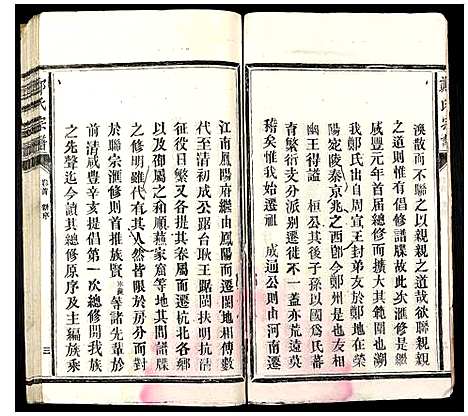 鄭氏宗譜
渙散而不聯之以親親之道哉欲聯親親
之道則惟有倡修譜牒故此次滙修是繼
咸豐元年首屆總修而擴大其範圍也溯
我鄭氏出自周宣王封弟友於鄭食采咸
陽定陵泰京兆之西卽今鄭州是也友相
幽王得謚 桓公其後子孫以國爲氏蕃
育繁衍支分派別遷徙不一蓋亦荒遠莫
稽矣惟我始遷祖 成通公則由河南遷
江南鳳陽府繼由鳳陽而遷閩地相傳數
代至清初成公踞台耿王踞閩扶明抗清
征役日繁又各提其眷屬而遷杭北各縣
以及御屬之和順燕家窩等地其間譜牒
之修明雖代有其人然皆限於房分而至
於聯宗滙修則首推族賢 等諸先輩於
前清咸豐辛亥提倡第一次總修開我族
之先聲迄今讀其總修原序及主編族乘
鄭氏宗譜
卷首 新序
三